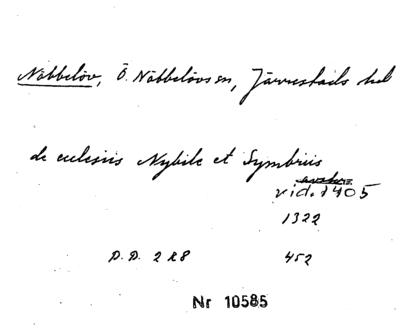 Nöbbelöv, Ö. Nöbbelövs sn, Järrestads hd
de eclesiis Nybile et Symbriis
vid. 1405
1322
D.D. 2 R8 452
Nr 10585